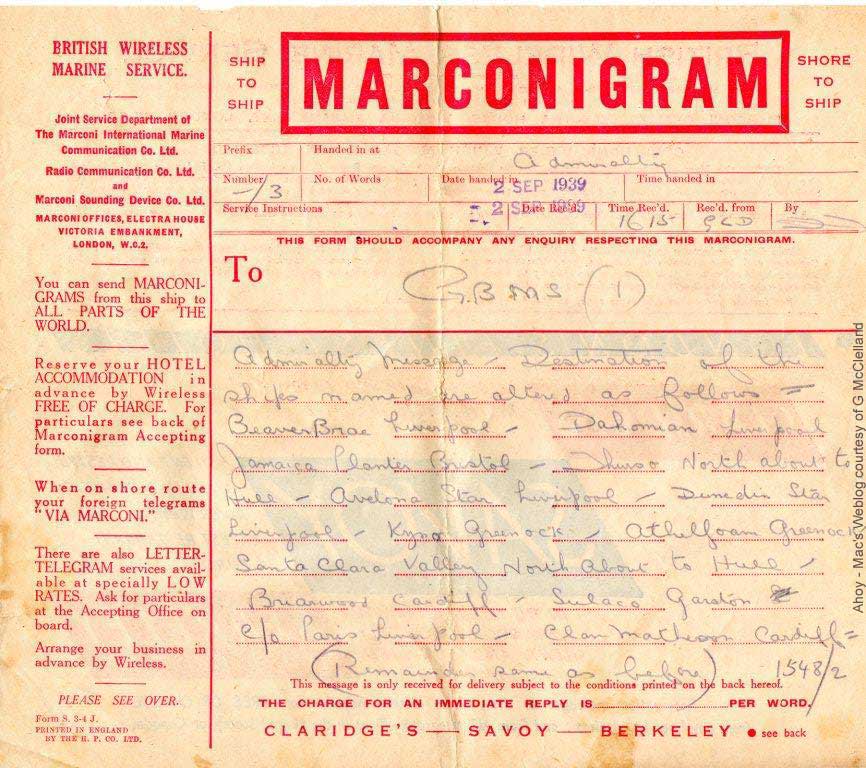 BRITISH WIRELESS
MARINE SERVICE.
Joint Service Department of
The Marconi International Marine
Communication Co. Ltd.
Radio Communication Co. Ltd.
and
Marconi Sounding Device Co. Ltd.
MARCONI OFFICES, ELECTRA HOUSE
VICTORIA EMBANKMENT,
LONDON, W.C.2.
You can send MARCONI-
GRAMS from this ship to
ALL PARTS OF THE
WORLD.
Reserve your HOTEL
ACCOMMODATION in
advance by Wireless
FREE OF CHARGE. For
particulars see back of
Marconigram Accepting
form.
When on shore route
your foreign telegrams
"VIA MARCONI."
There are also LETTER-
TELEGRAM services avail-
able at specially LOW
RATES. Ask for particulars
at the Accepting Office on
board.
Arrange your business in
advance by Wireless.
PLEASE SEE OVER.
Form S. 3-4 J.
PRINTED IN ENGLAND
BY THE H. P. CO. LTD.
SHIP
TO
SHIP
MARCONIGRAM
SHORE
TO
SHIP
Prefix
Handed in at
Admiralty
Number
-/3
No. of Words
Date handed in
2 SEP 1939
Time handed in
Service Instructions
2 SEP 1939
Date Rec'd.
Time Rec'd.
1615
Rec'd. from
GLD
By
THIS FORM SHOULD ACCOMPANY ANY ENQUIRY RESPECTING THIS MARCONIGRAM.
To
G.B M S (1)
Admiralty Message - Destination of the
ships named are altered as follows =
BeaverBrae Liverpool - Dahomian Liverpool
Jamaica Planter Bristol - Thurso North about to
Hull - Avelona Star Liverpool - Dunedin Star
Liverpool - Kyno Greenock - Athelfoam Greenock
Santa Clara Valley North About to Hull -
Briarwood Cardiff - Sulaco Garston
C/o Paris Liverpool - Clan Matheson Cardiff =
(Remainder same as before) 1548/2
This message is only received for delivery subject to the conditions printed on the back hereof.
THE CHARGE FOR AN IMMEDIATE REPLY IS PER WORD.
CLARIDGE'S — SAVOY — BERKELEY ● see back
Ahoy - Mac's Weblog courtesy of G McClelland